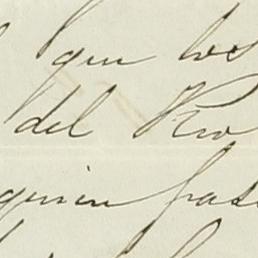 que los
del Rio
quien pase